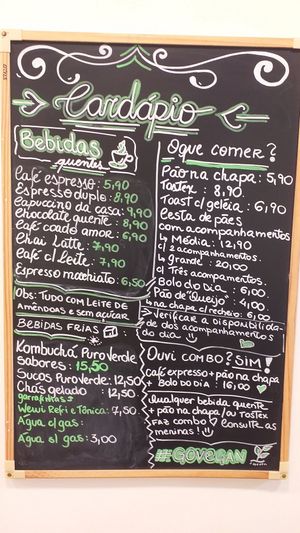 Cardápio
Bebidas
quentes
Café espresso: 5,90
Espresso duplo: 8,90
Capuccino da casa: 9,90
Chocolate quente: 8,90
Café coado amor: 6,90
Chai Latte: 7,90
Café c/ Leite: 7,90
Espresso macchiato: 6,50
Obs: Tudo com leite de
amêndoas e sem açúcar
Bebidas frias
Kombucha Puro Verde
sabores: 15,50
Sucos Puro Verde: 12,50
Chás gelado: 12,50
garrafinhas
Wewi Refri e Tônica: 7,50
Água c/ gas:
Água s/ gas: 3,00
O que comer?
Pão na chapa: 5,90
Tostex: 8,90
Toast c/ geléia: 6,90
Cesta de pães
com acompanhamentos
Média: 12,90
c/ 2 acompanhamentos
grande: 20,00
c/ Três acompanhamentos
Bolo do Dia: 6,00
Pão de Queijo: 4,00
na chapa c/ recheio: 6,00
Verificar a disponibilida-
de dos acompanhamentos
do dia!!
Ouvi combo? Sim!
Café espresso + pão na chapa
+ Bolo do Dia: 16,00
Qualquer bebida quente
+ pão na chapa/ou Tostex
faz combo Consulte as
meninas!!
#GOVEGAN